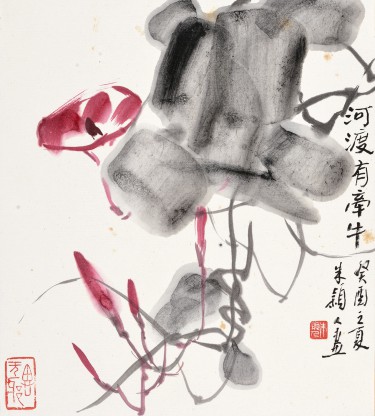 河渡有牵牛
癸酉之夏
朱颖人画